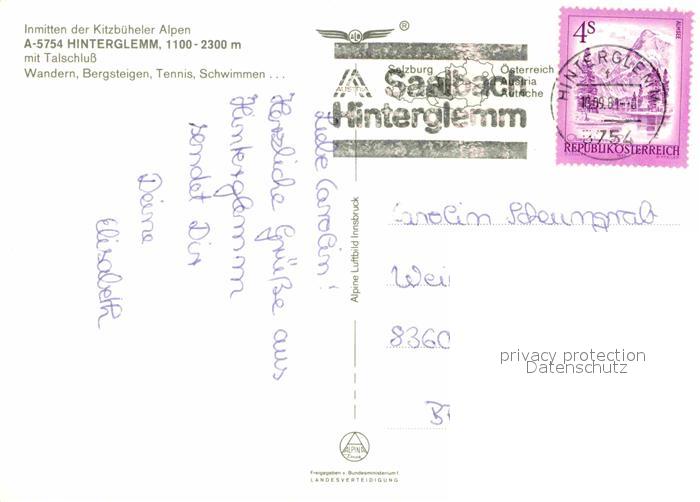 Inmitten der Kitzbüheler Alpen
A-5754 HINTERGLEMM, 1100-2300 m
mit Talschluß
Wandern, Bergsteigen, Tennis, Schwimmen ...
Liebe Carolin!
Herzliche Grüße aus
Hinterglemm
sendet Dir
Deine
Elisabeth
Alpine Luftbild Innsbruck
ALPINA
Freigegeben v. Bundesministerium f.
LANDESVERTEIDIGUNG
®
AUSTRIA
Salzburg
Österreich
Austria
Autriche
Saalbach
Hinterglemm
HINTERGLEMM
5754
4S
ALMSEE
REPUBLIK ÖSTERREICH
Carolin
Wei
8360
privacy protection
Datenschutz